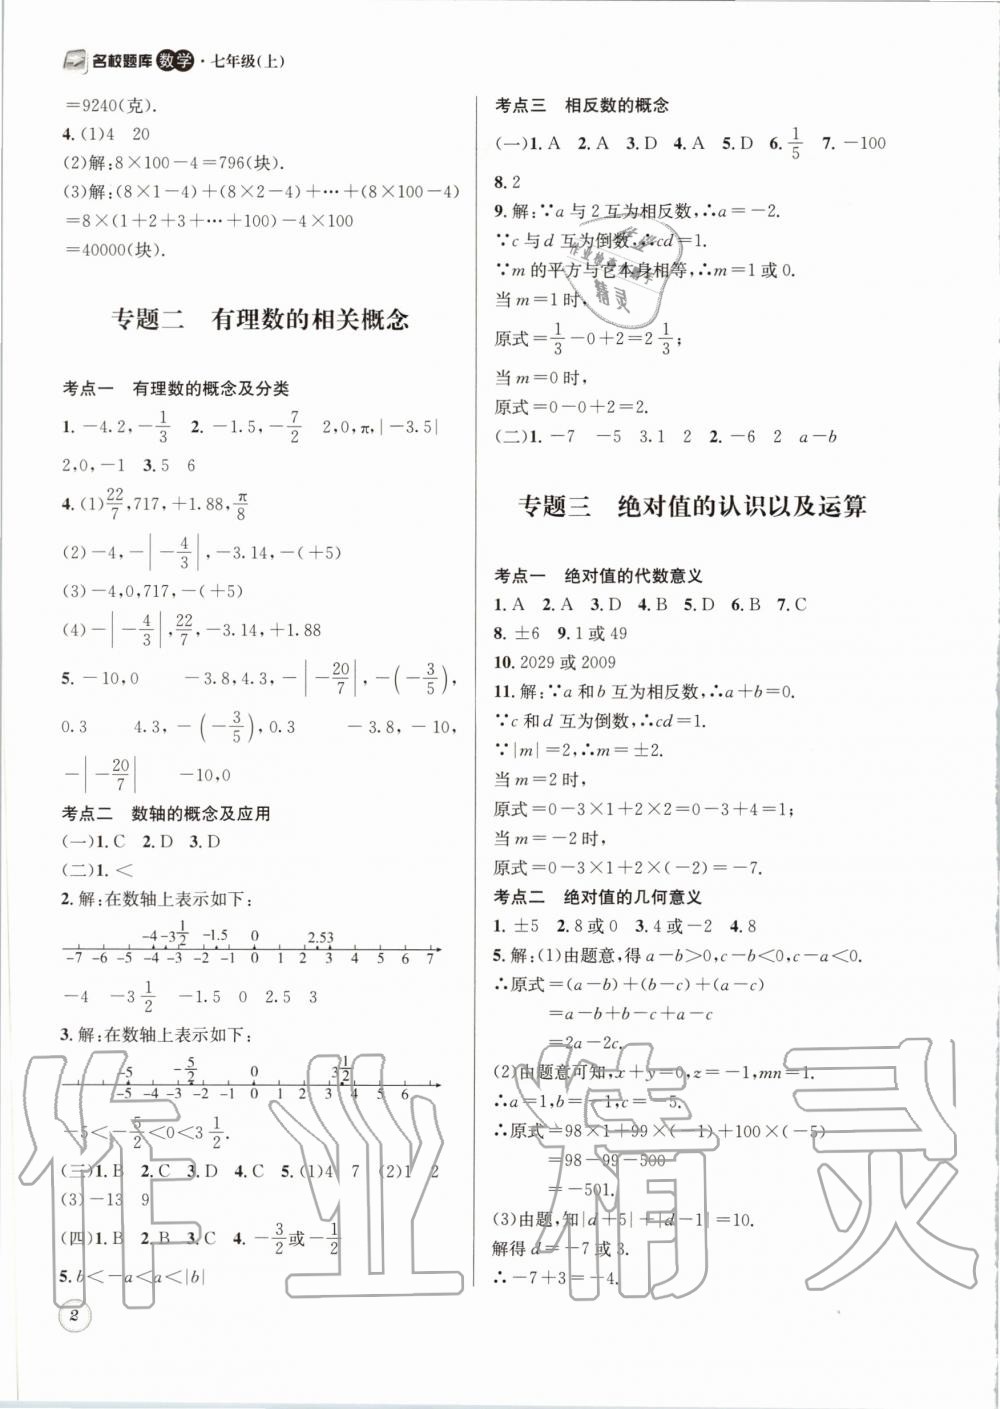 名校题库 数学·七年级(上)
=9240(克).
4.(1)4　20
(2)解:8×100-4=796(块).
(3)解:(8×1-4)+(8×2-4)+…+(8×100-4)
=8×(1+2+3+…+100)-4×100
=40000(块).
专题二　有理数的相关概念
考点一　有理数的概念及分类
1.-4.2,-1/3　2.-1.5,-7/2　2,0,π,|-3.5|
2,0,-1　3.5　6
4.(1)22/7,717,+1.88,π/8
(2)-4,-|-4/3|,-3.14,-(+5)
(3)-4,0,717,-(+5)
(4)-|-4/3|,22/7,-3.14,+1.88
5.-10,0　-3.8,4.3,-|-20/7|,-(-3/5),
0.3　4.3,-(-3/5),0.3　-3.8,-10,
-|-20/7|　-10,0
考点二　数轴的概念及应用
(一)1.C　2.D　3.D
(二)1.<
2.解:在数轴上表示如下:
-4 -3 1/2　-1.5　0　2.53
-7 -6 -5 -4 -3 -2 -1 0 1 2 3 4 5 6 7
-4　-3 1/2　-1.5　0　2.5　3
3.解:在数轴上表示如下:
-5　-5/2　0　3 1/2
-5 -4 -3 -2 -1 0 1 2 3 4 5 6
-5<-5/2<0<3 1/2.
(三)1.B　2.C　3.D　4.C　5.(1)4　7　(2)1　2
(3)-13　9
(四)1.B　2.B　3.C　4.-3/2或-1/2
5.b<-a<a<|b|
2
考点三　相反数的概念
(一)1.A　2.A　3.D　4.A　5.D　6.1/5　7.-100
8.2
9.解:∵a与2互为相反数,∴a=-2.
∵c与d互为倒数,∴cd=1.
∵m的平方与它本身相等,∴m=1或0.
当m=1时,
原式=1/3-0+2=2 1/3;
当m=0时,
原式=0-0+2=2.
(二)1.-7　-5　3.1　2　2.-6　2　a-b
专题三　绝对值的认识以及运算
考点一　绝对值的代数意义
1.A　2.A　3.D　4.B　5.D　6.B　7.C
8.±6　9.1或49
10.2029或2009
11.解:∵a和b互为相反数,∴a+b=0.
∵c和d互为倒数,∴cd=1.
∵|m|=2,∴m=±2.
当m=2时,
原式=0-3×1+2×2=0-3+4=1;
当m=-2时,
原式=0-3×1+2×(-2)=-7.
考点二　绝对值的几何意义
1.±5　2.8或0　3.4或-2　4.8
5.解:(1)由题意,得a-b>0,c-b<0,c-a<0.
∴原式=(a-b)+(b-c)+(a-c)
=a-b+b-c+a-c
=2a-2c.
(2)由题意可知,x+y=0,z=-1,mn=1.
∴a=1,b=-1,c=-5.
∴原式=98×1+99×(-1)+100×(-5)
=98-99-500
=-501.
(3)由题,知|d+5|+|d-1|=10.
解得d=-7或3.
∴-7+3=-4.
作业精灵